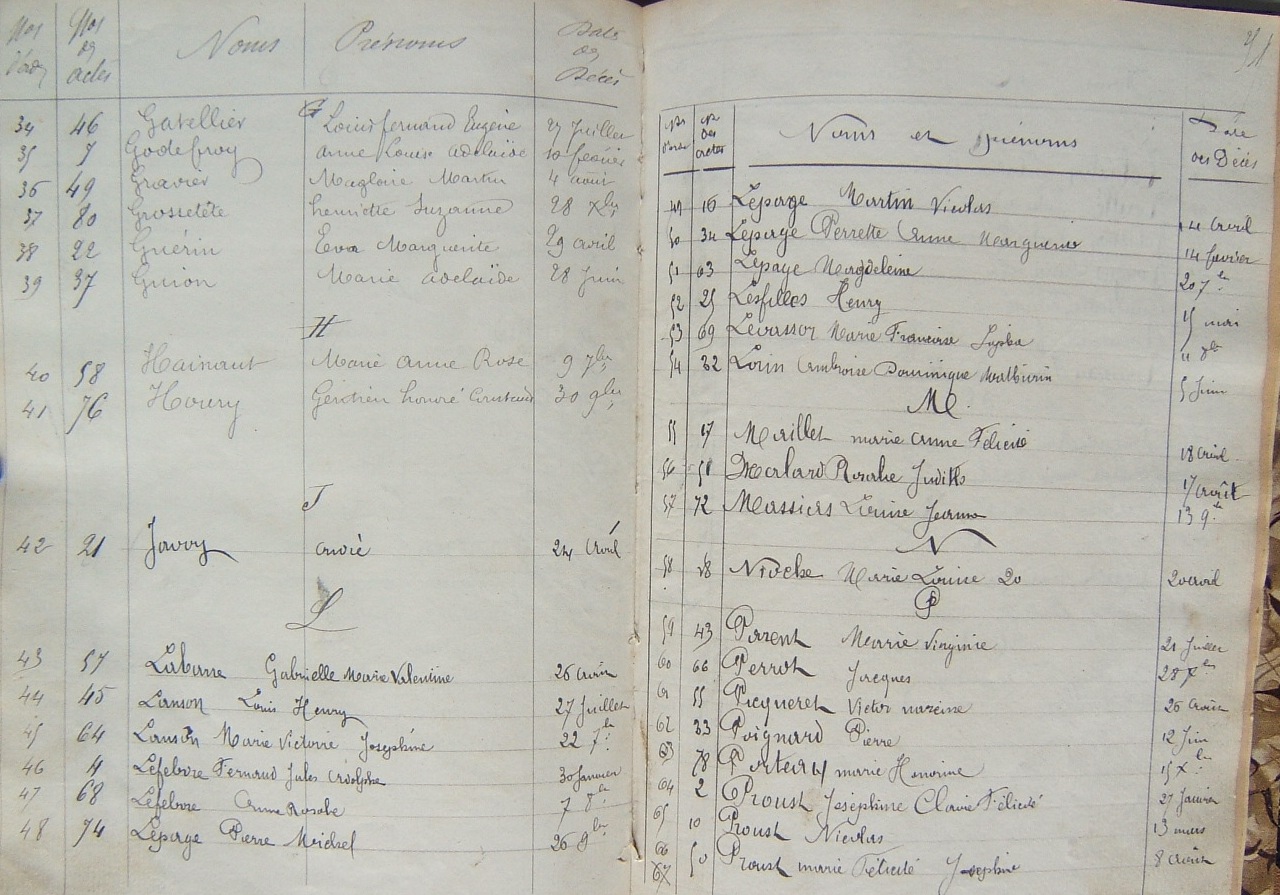 Nos d'ord Nos des actes Noms Prénoms Date des Décès
G
34 46 Gatellier Louis fernand Eugène 27 Juillet
35 7 Godefroy anne Louise adelaïde 10 fevrier
36 49 Gravier Magloire Martin 4 aout
37 80 Grossetête henriette Suzanne 28 Xbre
38 22 Guérin Eva Marguerite 29 avril
39 37 Guion Marie adelaïde 28 Juin
H
40 58 Hainaut Marie anne Rose 9 7bre
41 76 Houry Gentien honoré 30 9bre
J
42 21 Javoy 24 avril
L
43 57 Gabrielle Marie Valentine 26 août
44 45 Lanson Louis Henry 27 Juillet
45 64 Lanson Marie Victoire Joséphine 22 7bre
46 4 Lefebvre Fernand Jules Adolphe 30 Janvier
47 68 Lefebvre Anne Rosalie 7 8bre
48 74 Lepage Pierre Michel 26 9bre
Nos d'ordre Nos des actes Noms et prénoms Date des Décès
49 16 Lepage Martin Nicolas 14 avril
50 34 Lepage Perrette Anne Marguerite 14 fevrier
51 63 Lepage Magdeleine 20 7bre
52 25 Lesfilles Henry 15 mai
53 69 Levassor Marie Françoise Sophie 11 8bre
54 32 Lorin Ambroise Dominique Mathurin 5 Juin
M
55 17 Maillet marie anne Félicité 18 avril
56 51 Malard Rosalie Judith 17 août
57 72 Massiers Louise Jeanne 13 9bre
N
58 18 Nioche Marie Louise 20 20 avril
P
59 43 Parent Marie Virginie 21 Juillet
60 66 Perrot Jacques 28 Xbre
61 55 Picqueret Victor 26 août
62 33 Poignard Pierre 12 Juin
63 78 marie Honorine 15 Xbre
64 2 Proust Joséphine Clarie Félicité 27 Janvier
65 10 Proust Nicolas 13 mars
66 67 50 Proust marie Félicité Josephine 8 août